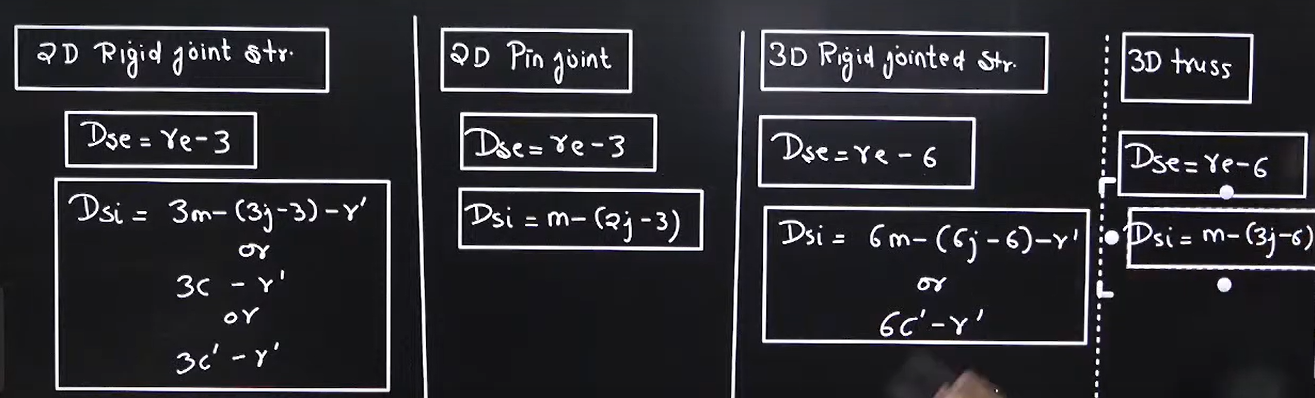 2D Rigid joint str.
Dse = re - 3
Dsi = 3m - (3j - 3) - r'
or
3c - r'
or
3c' - r'
2D Pin joint
Dse = re - 3
Dsi = m - (2j - 3)
3D Rigid jointed Str.
Dse = re - 6
Dsi = 6m - (6j - 6) - r'
or
6c' - r'
3D truss
Dse = re - 6
Dsi = m - (3j - 6)